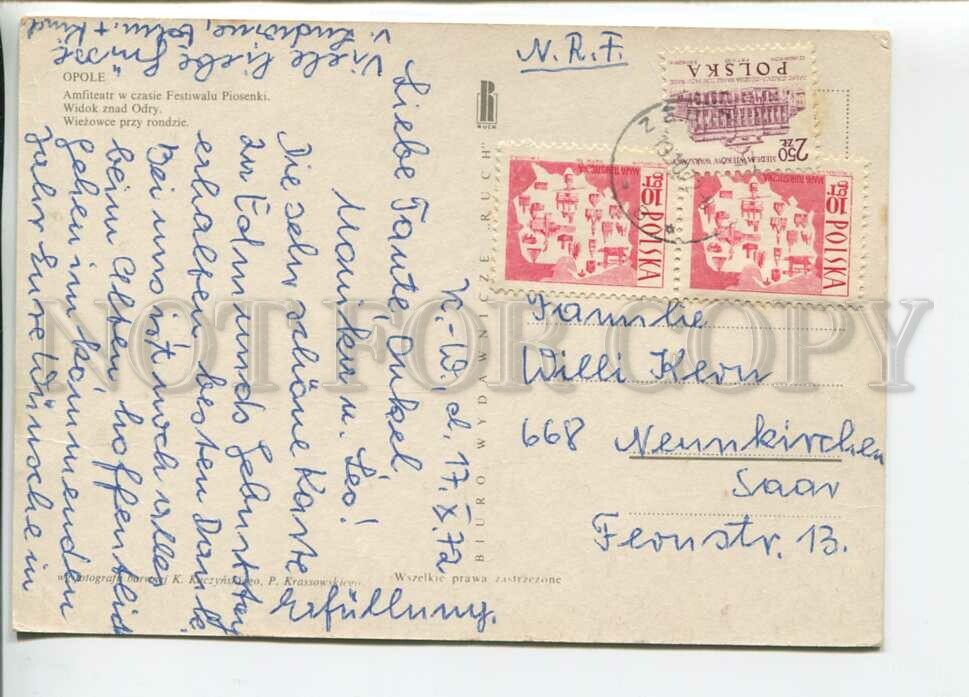 OPOLE
Amfiteatr w czasie Festiwalu Piosenki.
Widok znad Odry.
Wieżowce przy rondzie.
RUCH
BIURO WYDAWNICZE „RUCH"
Wszelkie prawa zastrzeżone
fotografii barwnej K. Kaczyńskiego, P. Krassowskiego
K.-W. d. 17. X. 72
Liebe Tante, Onkel,
Monika u. Leo!
Die sehr schöne Karte
zur Edmunds Geburtstag
erhalten besten Dank.
Bei uns ist noch alles
beim Alten, hoffentlich
gehen im kommenden
Jahr Eure Wünsche in
Erfüllung.
Viele liebe Grüsse
v.
N.R.F.
Familie
Willi Kern
668 Neunkirchen
Saar
Fernstr. 13.
POLSKA
2,50 ZŁ
SIEDEM WIEKÓW WARSZAWY
POLSKA
10 gr
MAPA TURYSTYCZNA
POLSKA
10 gr
MAPA TURYSTYCZNA
NOT FOR COPY